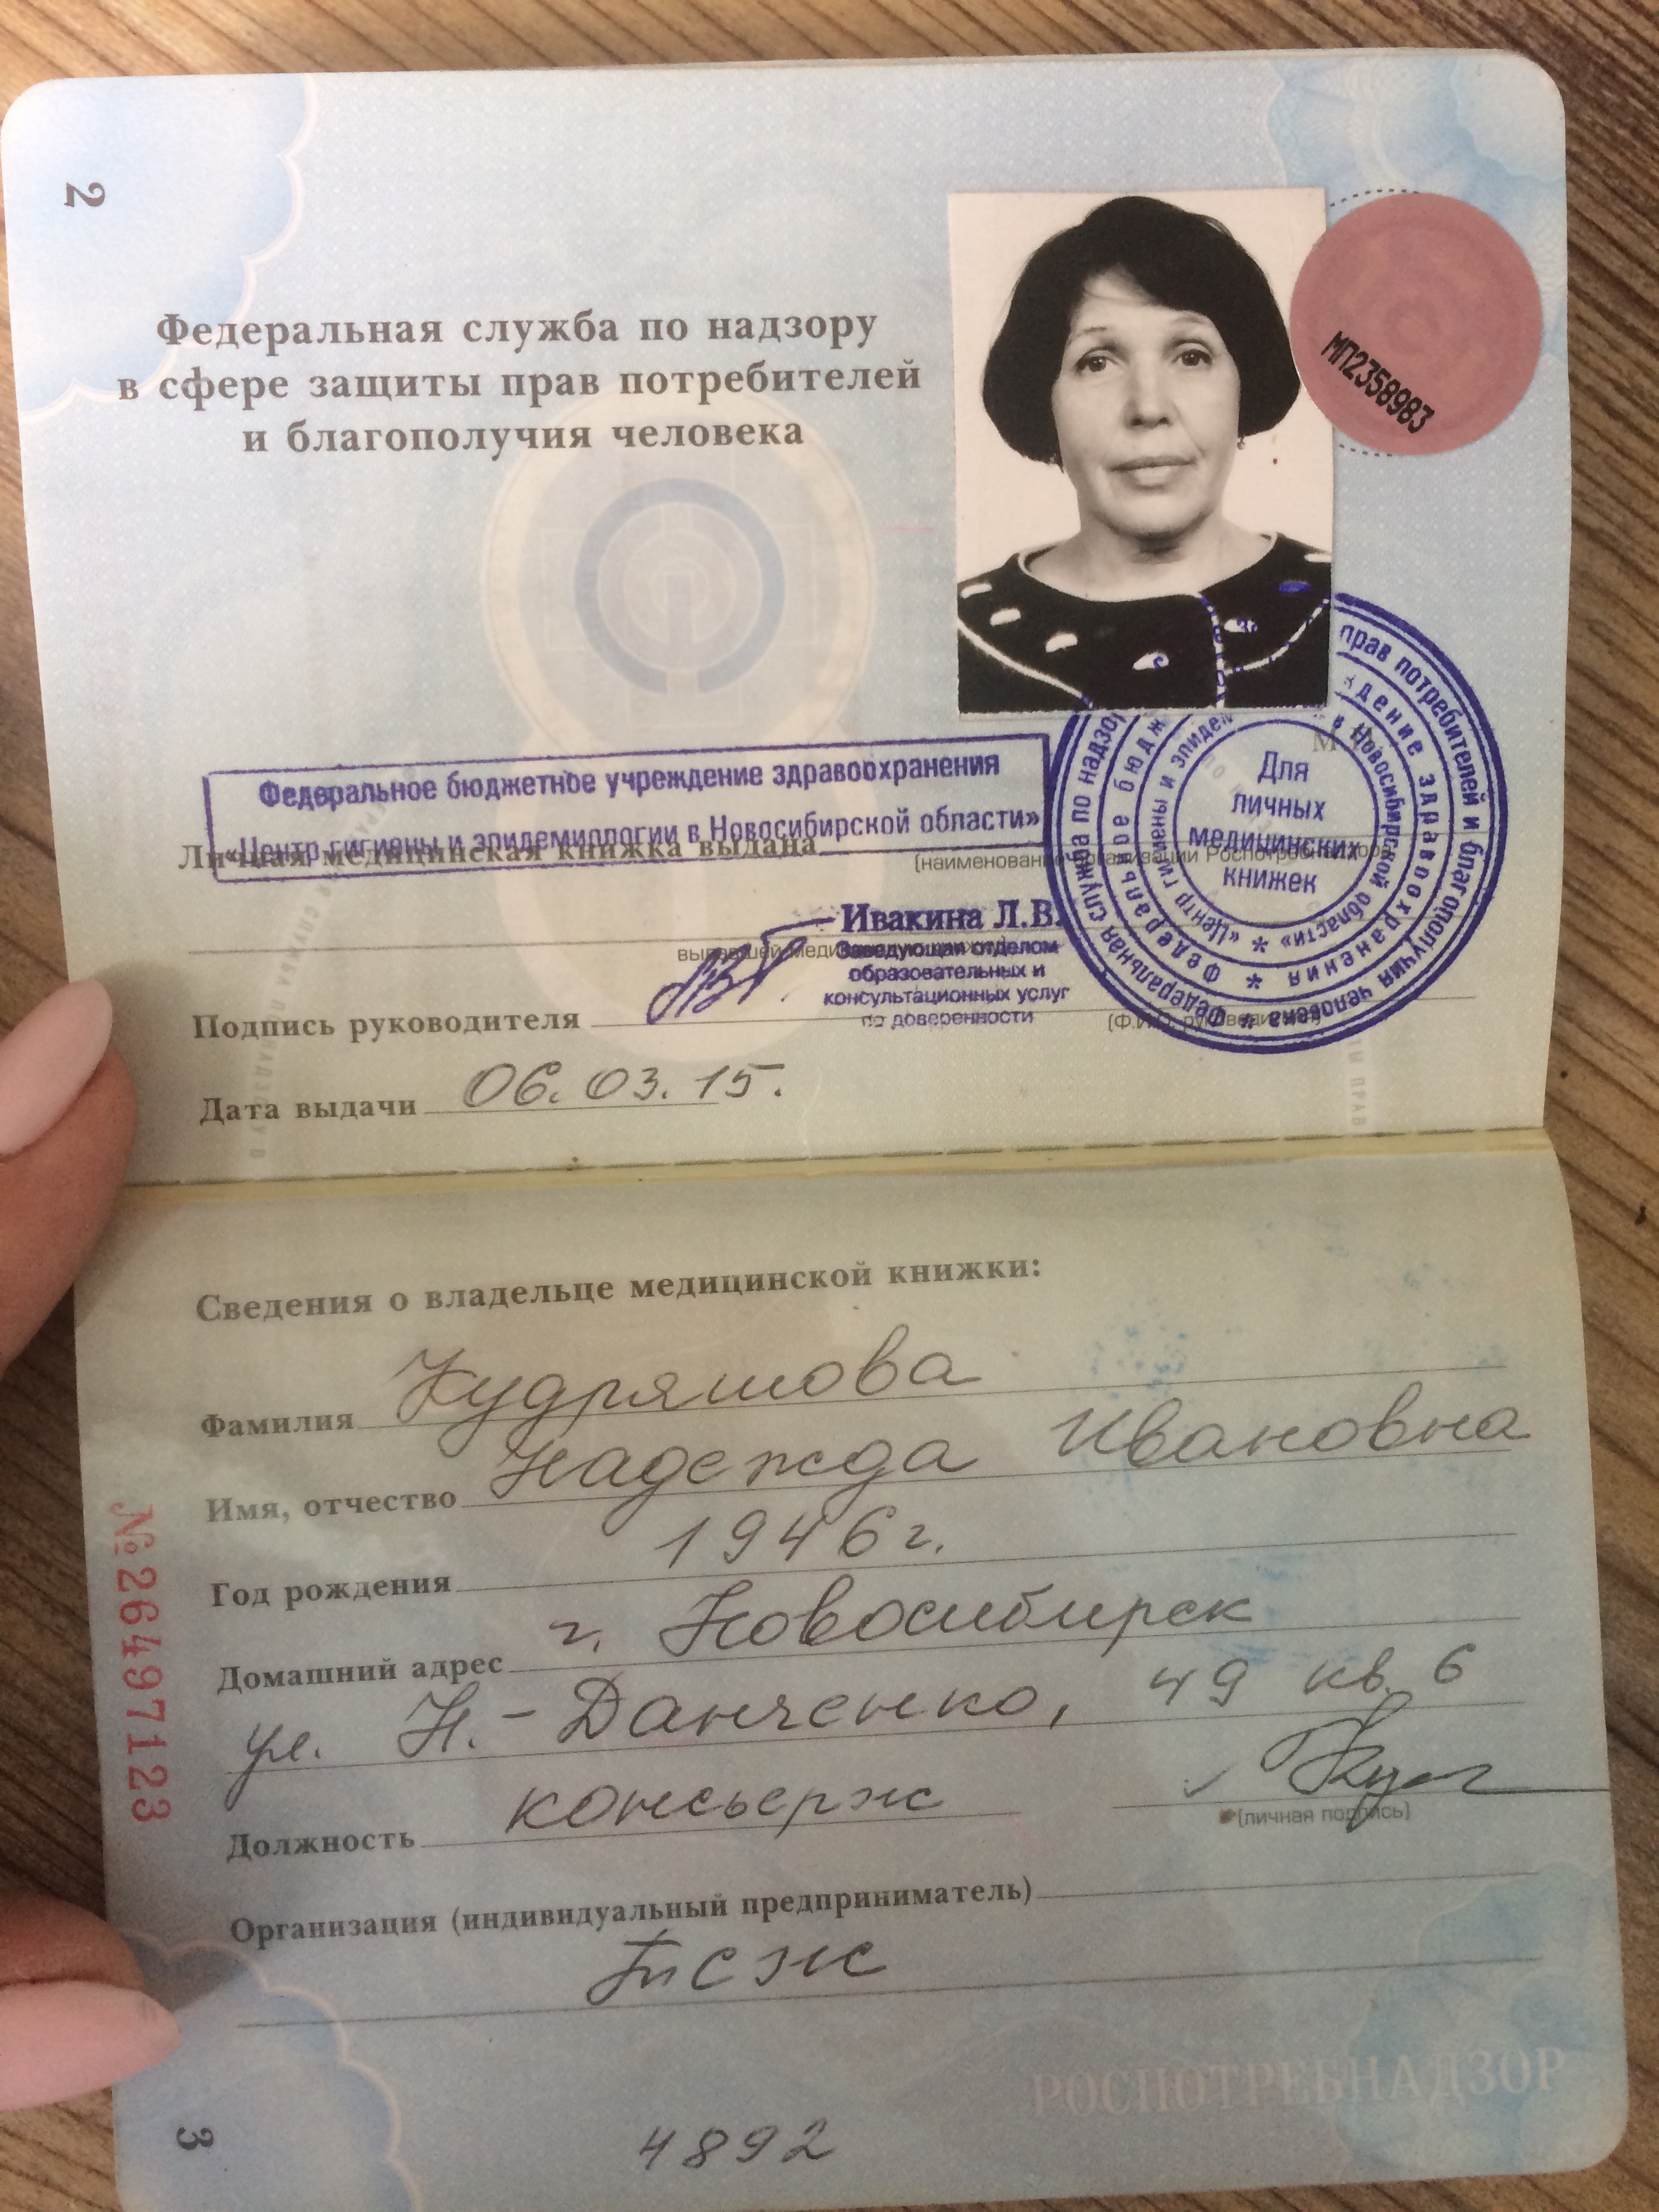 2
Федеральная служба по надзору
в сфере защиты прав потребителей
и благополучия человека
МП2358983
Федеральное бюджетное учреждение здравоохранения
«Центр гигиены и эпидемиологии в Новосибирской области»
Личная медицинская книжка выдана
(наименование организации Роспотребнадзора,
выдавшей медицинскую книжку)
Для
личных
медицинских
книжек
Федеральная служба по надзору прав потребителей и благополучия человека
Федеральное бюдж здравоохранения
«Центр гигиены и эпидем в Новосибирской области»
Ивакина Л.В.
Заведующая отделом
образовательных и
консультационных услуг
по доверенности
Подпись руководителя
(Ф.И.О. руководителя)
Дата выдачи 06.03.15.
Сведения о владельце медицинской книжки:
Фамилия Кудряшова
Имя, отчество Надежда Ивановна
Год рождения 1946г.
Домашний адрес г. Новосибирск
ул. Н.-Данченко, 49 кв. 6
Должность консьерж
(личная подпись)
Организация (индивидуальный предприниматель)
ТСЖ
№26497123
РОСПОТРЕБНАДЗОР
3
4892